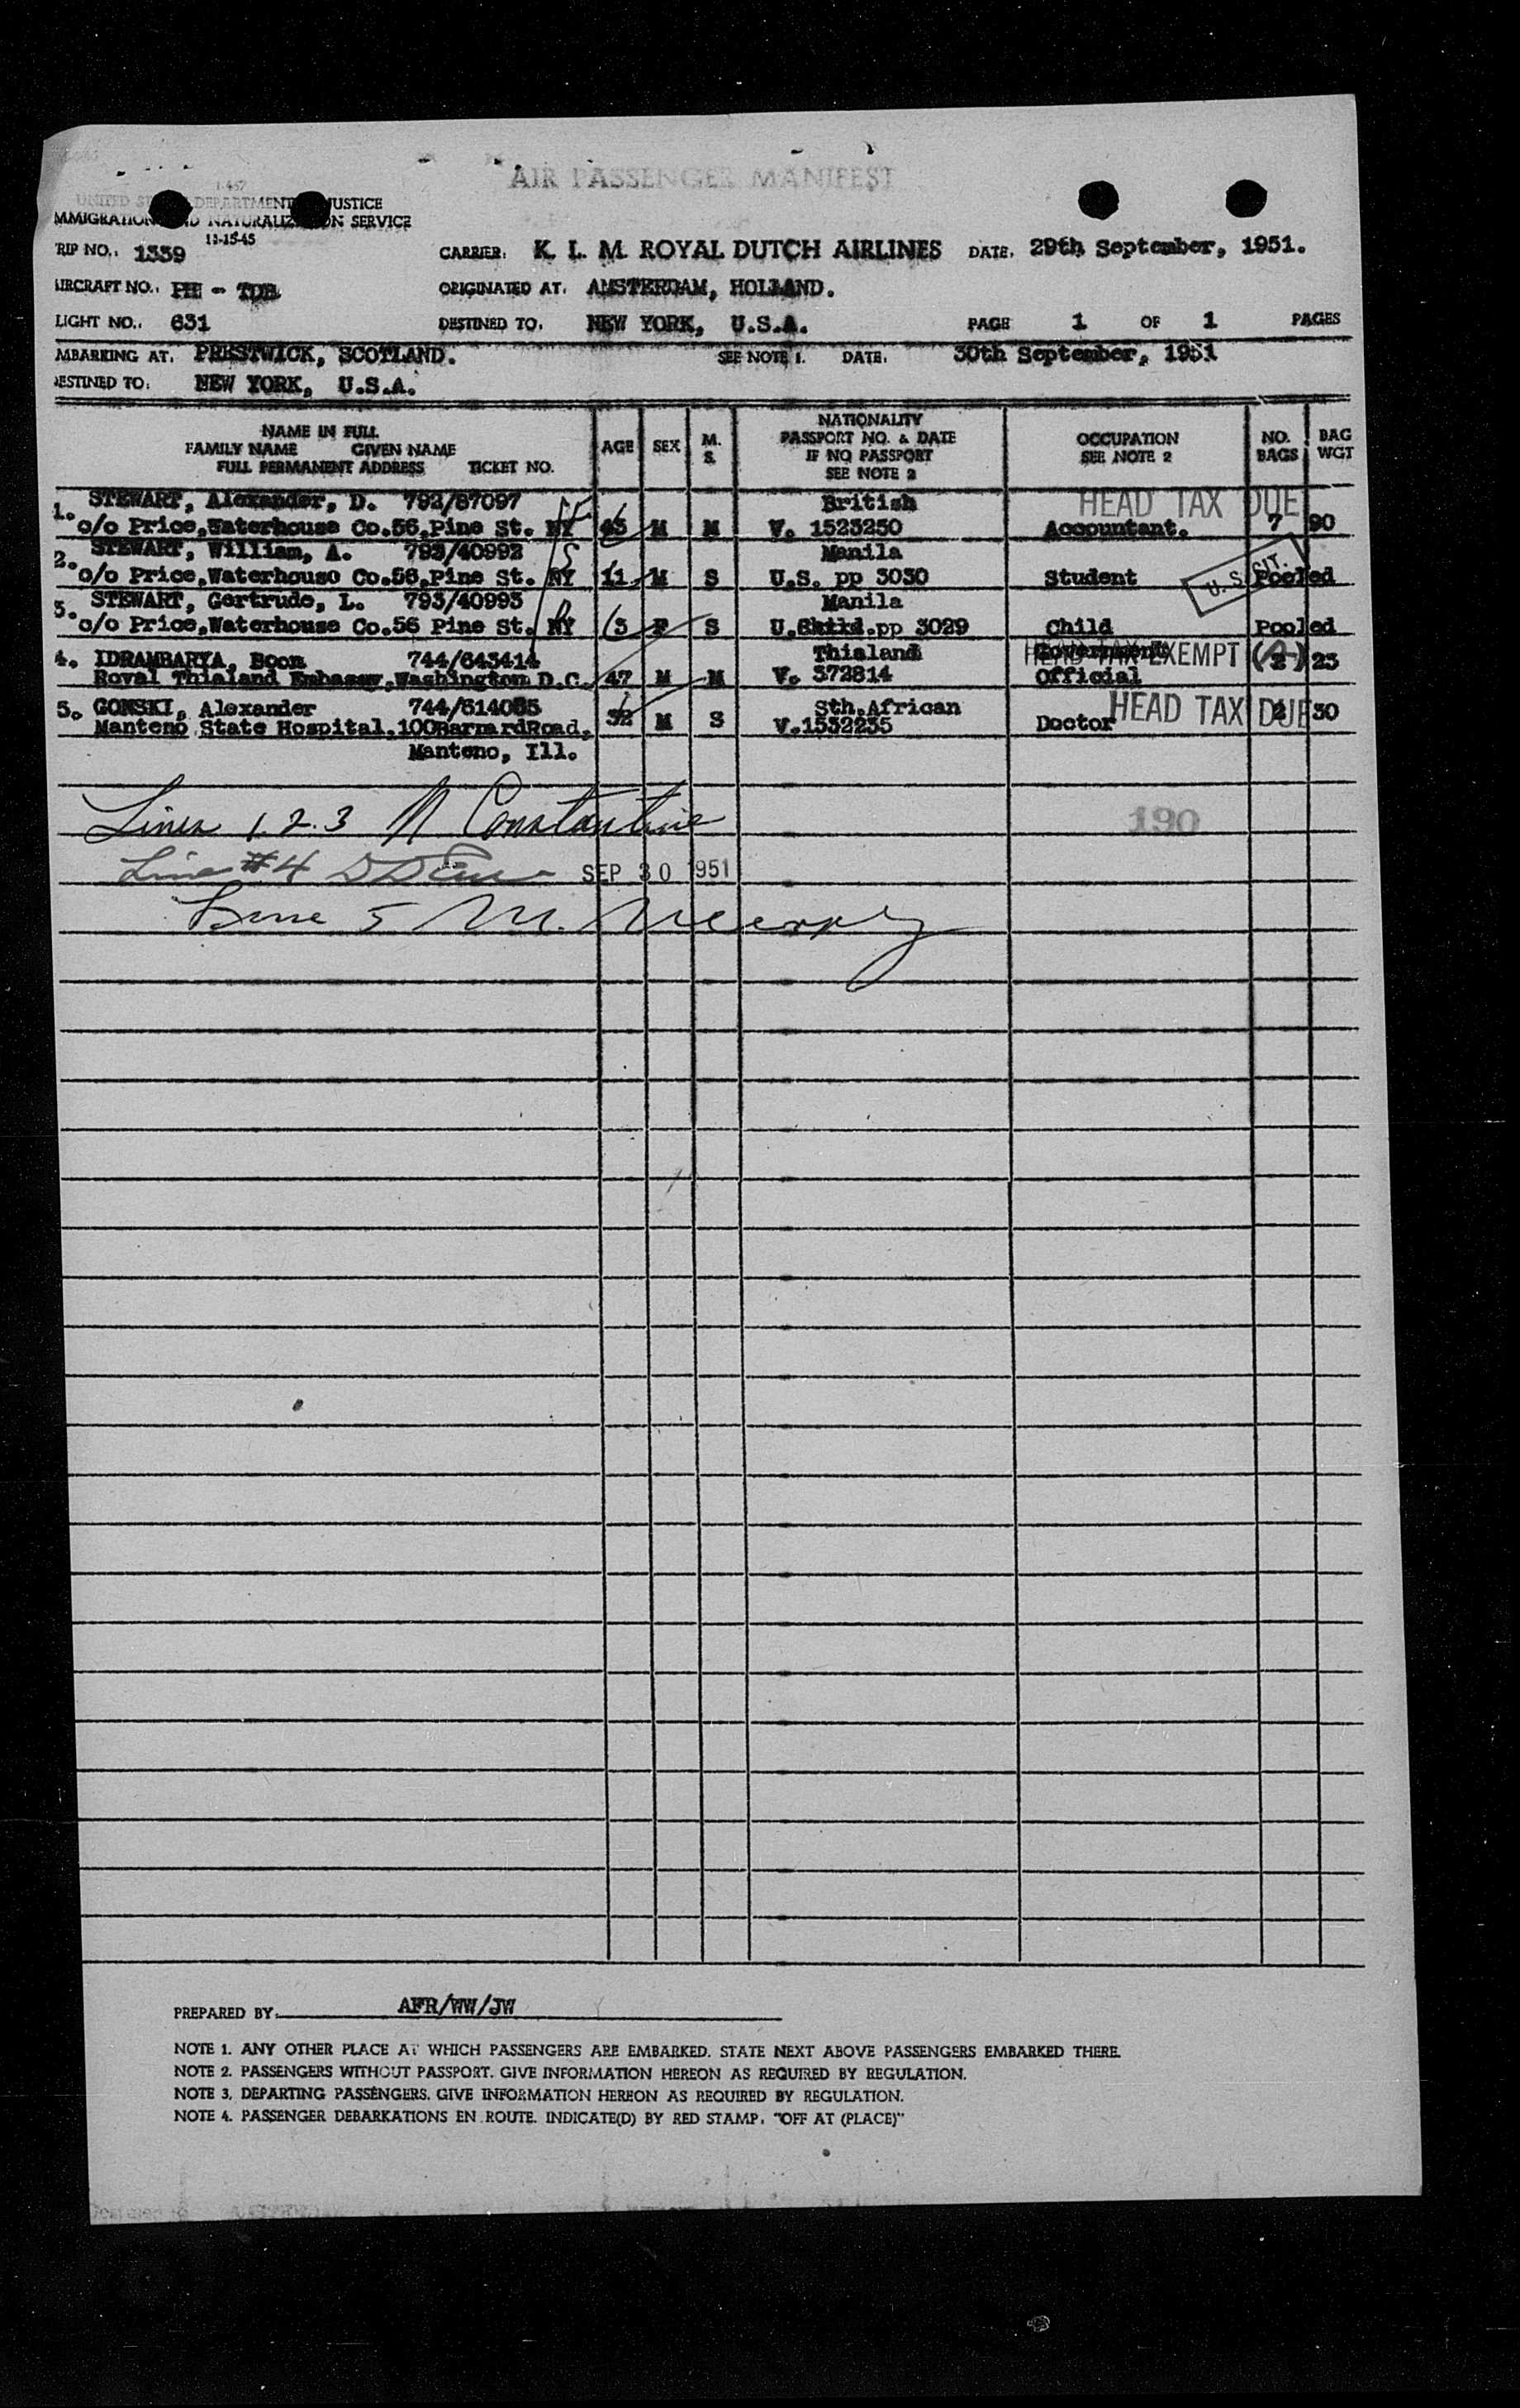 AIR PASSENGER MANIFEST
UNITED DEPARTMENT JUSTICE
MMIGRATION NATURALIZ ON SERVICE
11-15-45
RIP NO.: 1339 CARRIER: K. L. M. ROYAL DUTCH AIRLINES DATE. 29th September, 1951.
AIRCRAFT NO.: PH - TDB ORIGINATED AT. AMSTERDAM, HOLLAND.
LIGHT NO.: 631 DESTINED TO. NEW YORK, U.S.A. PAGE 1 OF 1 PAGES
MBARKING AT. PRESTWICK, SCOTLAND. SEE NOTE 1. DATE. 30th September, 1951
DESTINED TO: NEW YORK, U.S.A.
NAME IN FULL
FAMILY NAME GIVEN NAME
FULL PERMANENT ADDRESS TICKET NO.
AGE SEX M. S.
NATIONALITY
PASSPORT NO. & DATE
IF NO PASSPORT
SEE NOTE 2
OCCUPATION
SEE NOTE 2
NO. BAGS
BAG WGT
1. STEWART, Alexander, D. 792/87097 British HEAD TAX DUE
c/o Price,Waterhouse Co.56,Pine St. NY 45 M M V. 1523250 Accountant. 7 90
2. STEWART, William, A. 793/40992 Manila U.S. CIT.
c/o Price,Waterhouse Co.56,Pine St. NY 11 M S U.S. pp 3030 Student Pooled
3. STEWART, Gertrude, L. 793/40993 Manila
c/o Price,Waterhouse Co.56 Pine St. NY 3 F S pp 3029 Child Pooled
4. IDRAMBARYA, Boon 744/643414 Thialand Government HEAD TAX EXEMPT 2 23
Royal Thialand Embassy,Washington D.C. 47 M M V. 372814 Official
5. GONSKI, Alexander 744/614085 32 M S Sth.African Doctor HEAD TAX DUE 30
Manteno State Hospital,100BarnardRoad, V.1532235
Manteno, Ill.
Lines 1.2.3 N Constantine
190
Line #4 SEP 30 1951
Line 5 M.
PREPARED BY. AFR/WW/JW
NOTE 1. ANY OTHER PLACE AT WHICH PASSENGERS ARE EMBARKED. STATE NEXT ABOVE PASSENGERS EMBARKED THERE.
NOTE 2. PASSENGERS WITHOUT PASSPORT. GIVE INFORMATION HEREON AS REQUIRED BY REGULATION.
NOTE 3. DEPARTING PASSENGERS. GIVE INFORMATION HEREON AS REQUIRED BY REGULATION.
NOTE 4. PASSENGER DEBARKATIONS EN ROUTE. INDICATE(D) BY RED STAMP. "OFF AT (PLACE)"